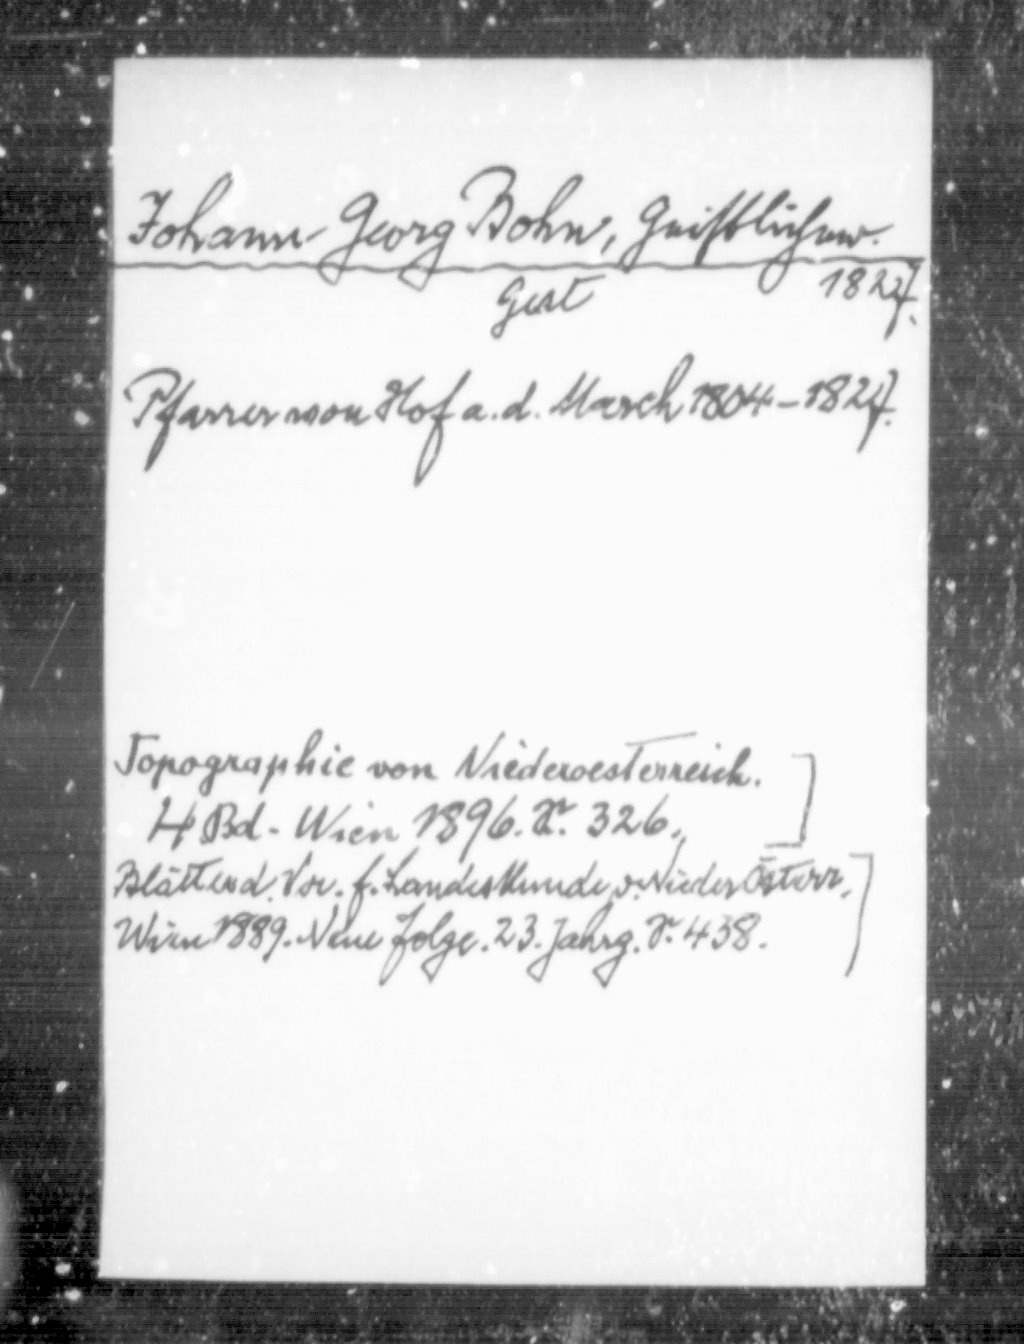 Johann Georg Bohn, Geistlicher.
Gest 1827.
Pfarrer von Hof a. d. March 1804–1827.
Topographie von Niederoesterreich.
4 Bd. Wien 1896. S. 326.
Blätter d. Ver. f. Landeskunde v. Nieder Österr.
Wien 1889. Neue Folge. 23. Jahrg. S. 438.